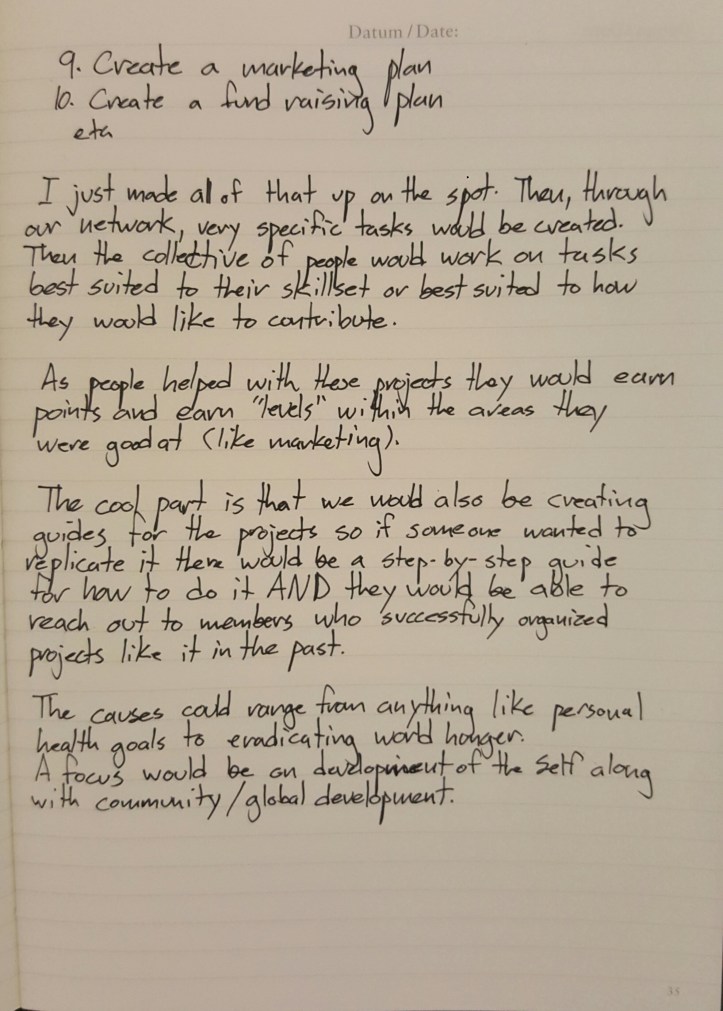 Datum / Date:
9. Create a marketing plan
10. Create a fund raising plan
etc
I just made al of that up on the spot. Then, through
our network, very specific tasks would be created.
Then the collective of people would work on tasks
best suited to their skillset or best suited to how
they would like to contribute.
As people helped with these projects they would earn
points and earn "levels" within the areas they
were good at (like marketing).
The cool part is that we would also be creating
guides for the projects so if someone wanted to
replicate it there would be a step-by-step guide
for how to do it AND they would be able to
reach out to members who successfully organized
projects like it in the past.
The causes could range from anything like personal
health goals to eradicating world hunger.
A focus would be on development of the Self along
with community/global development.
35